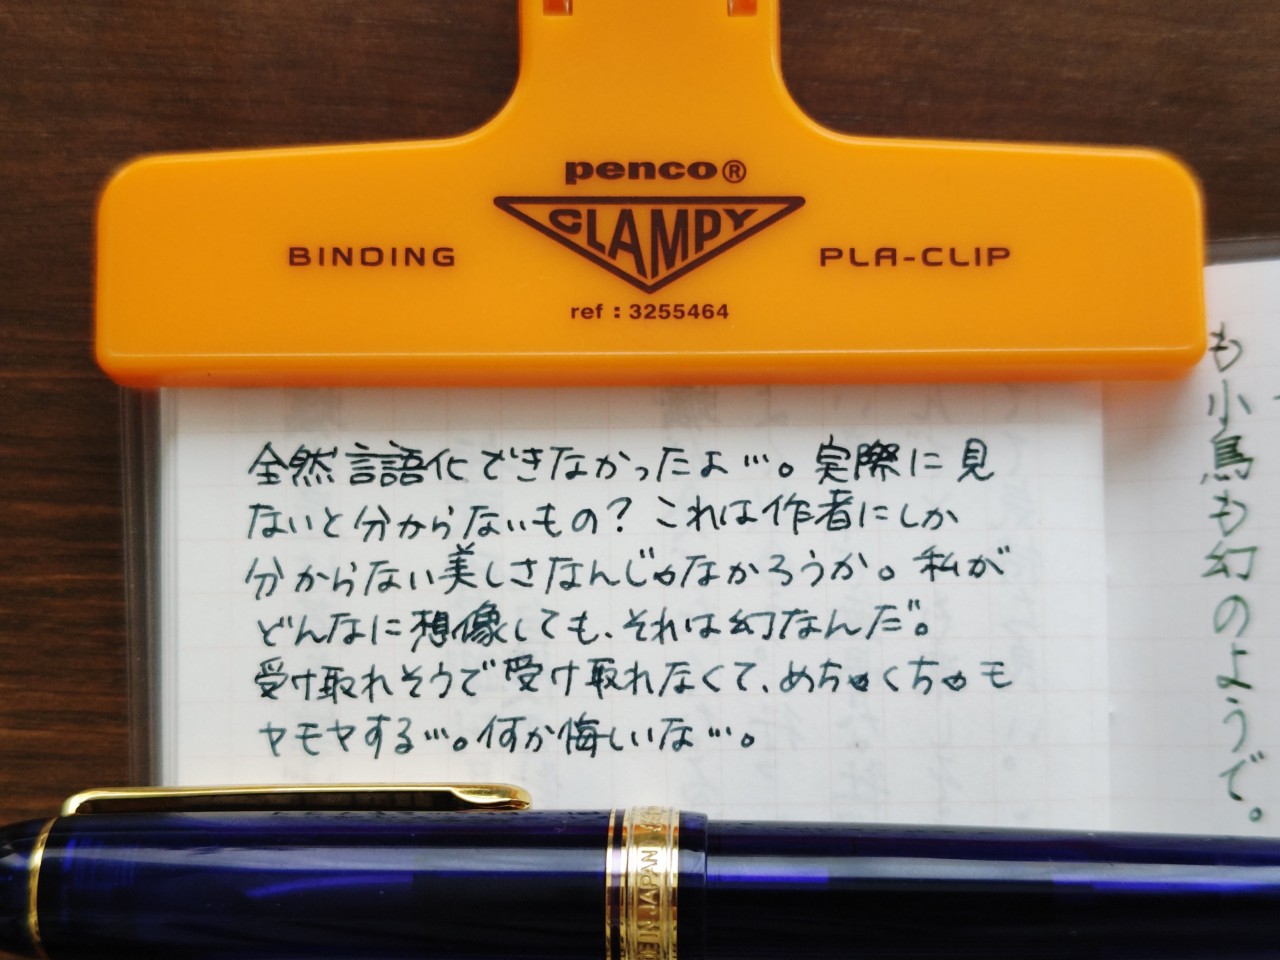 penco®
CLAMPY
BINDING
PLA-CLIP
ref : 3255464
全然言語化できなかったよ…。実際に見
ないと分からないもの？これは作者にしか
分からない美しさなんじゃなかろうか。私が
どんなに想像しても、それは幻なんだ。
受け取れそうで受け取れなくて、めちゃくちゃモ
ヤモヤする…。何か悔しいな…。
も小鳥も幻のようで。
IN JAPAN